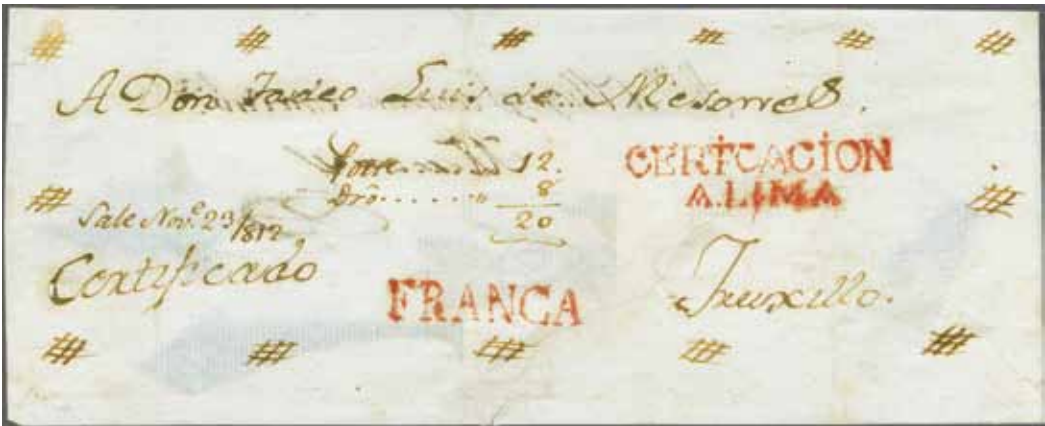 A Don Luis de
Porte 12.
Dro. 8
20
CERTCACION
A.LIMA
Sale Nov.e 23/812
Certificado
FRANCA
Truxillo.